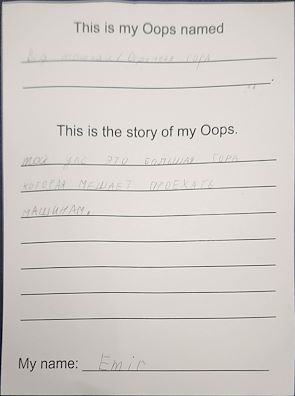 This is my Oops named
гора
This is the story of my Oops.
мой упс это большая гора
которая мешает проехать
машинам.
My name: Emir